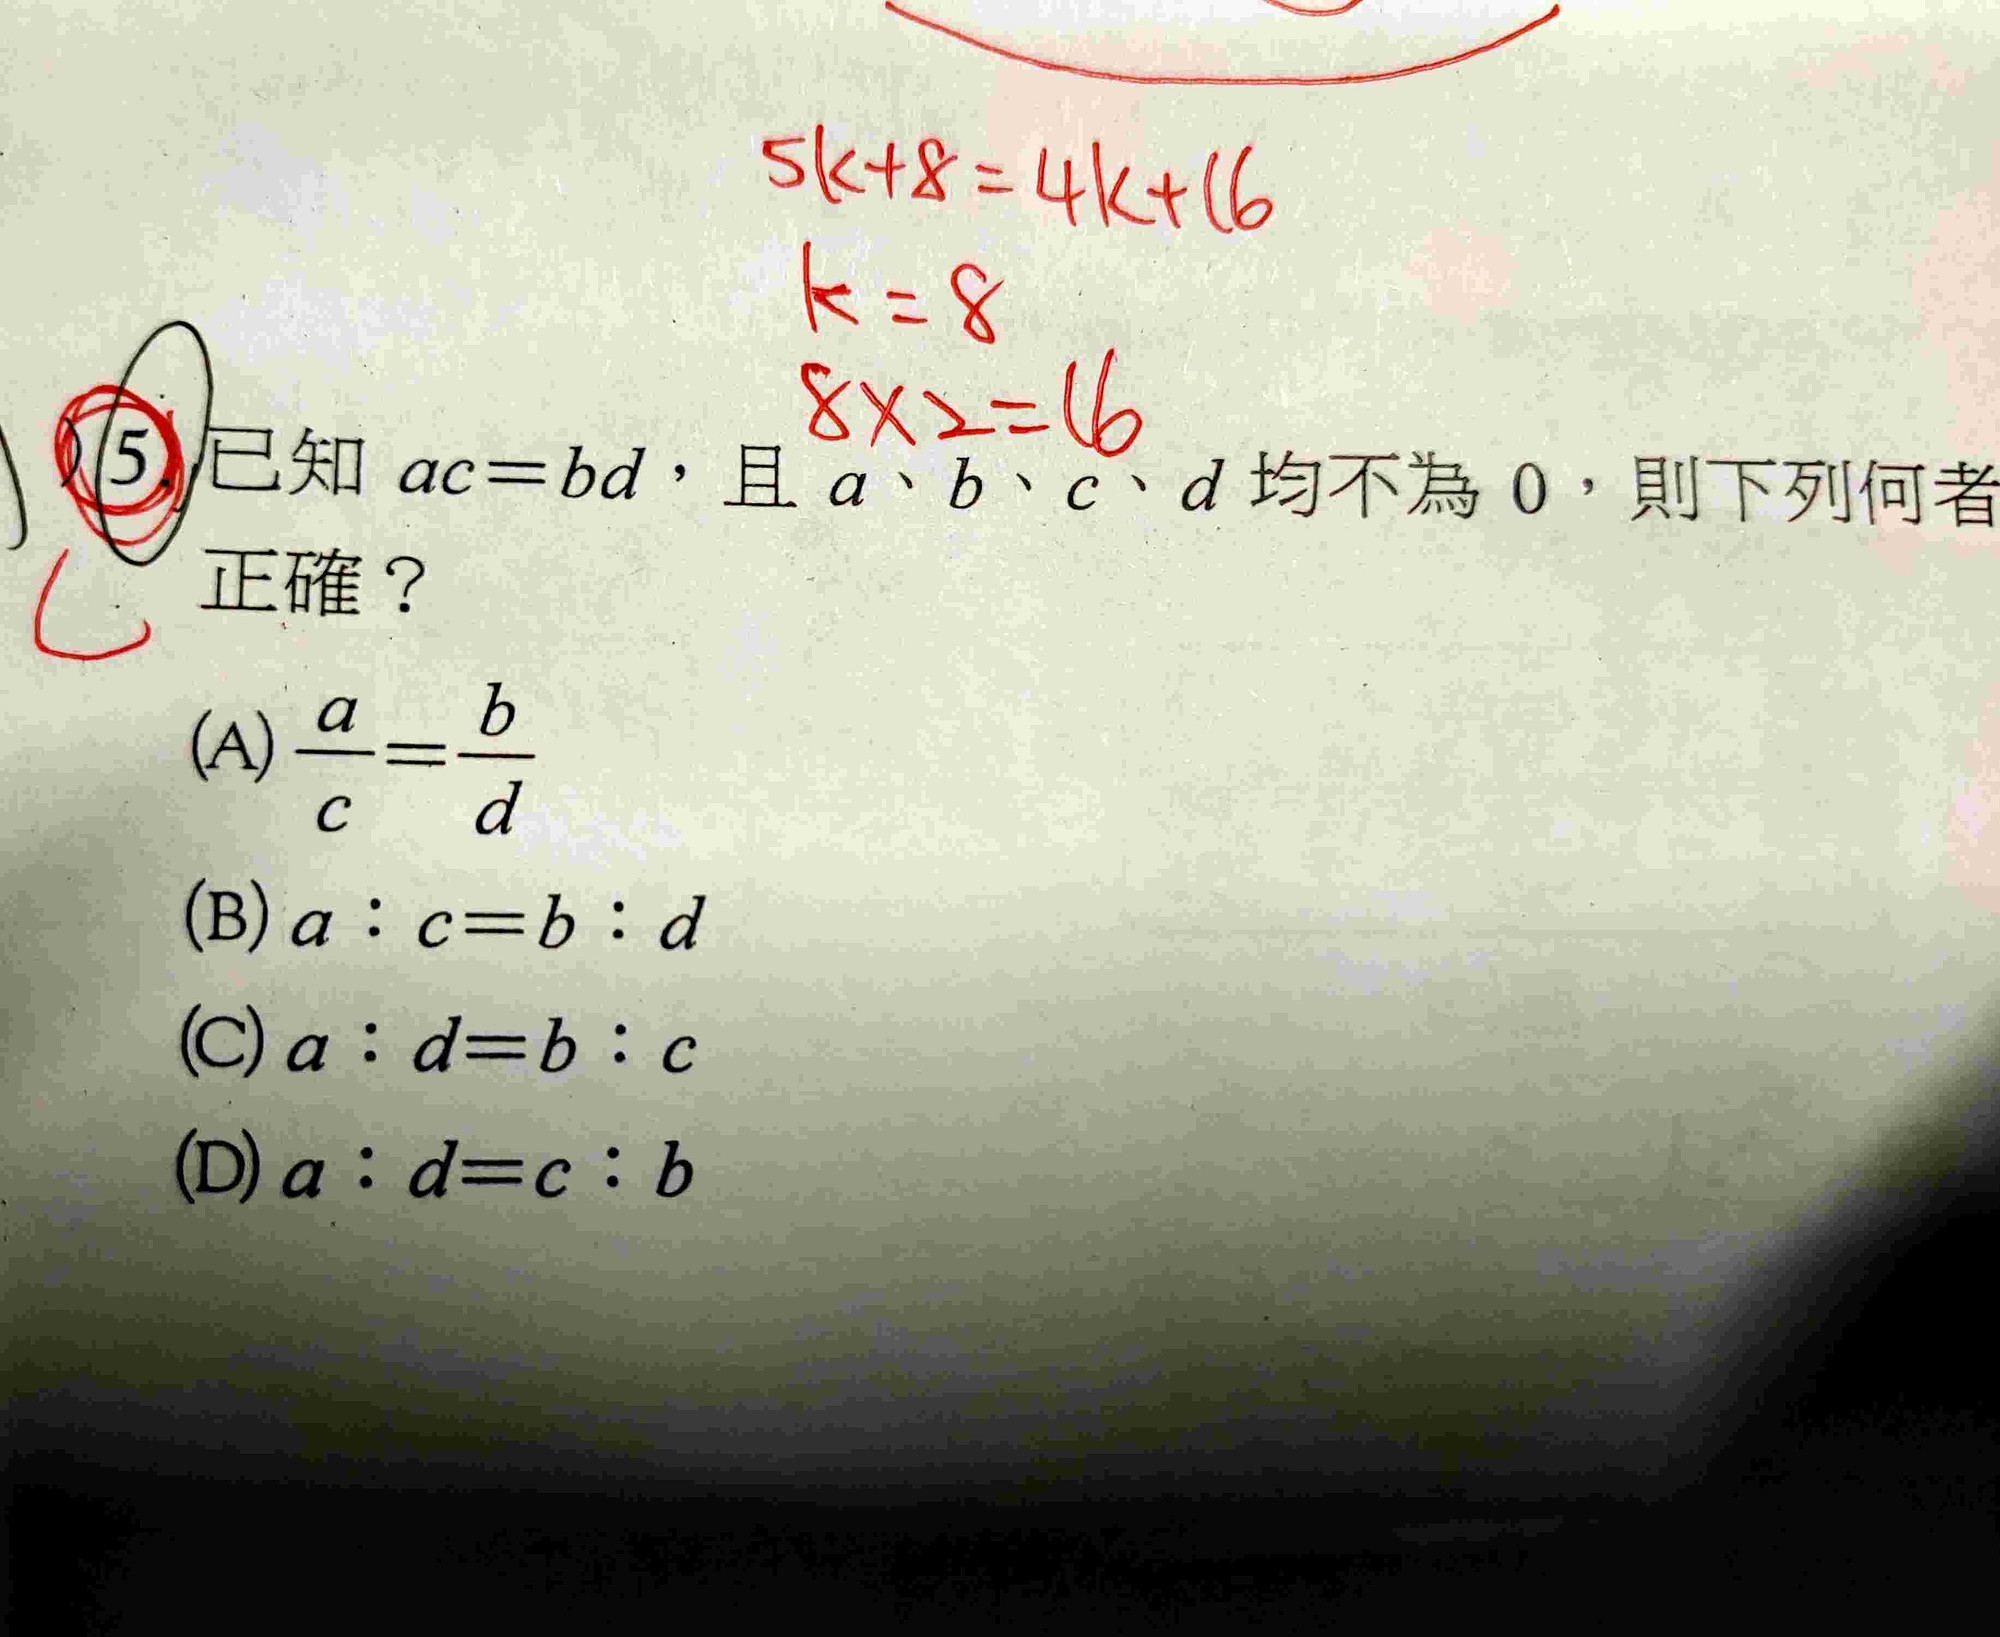 5k+8=4k+16
k=8
8×2=16
)5. 已知 ac=bd，且 a、b、c、d 均不為 0，則下列何者
正確？
(A) a/c=b/d
(B) a：c=b：d
(C) a：d=b：c
(D) a：d=c：b